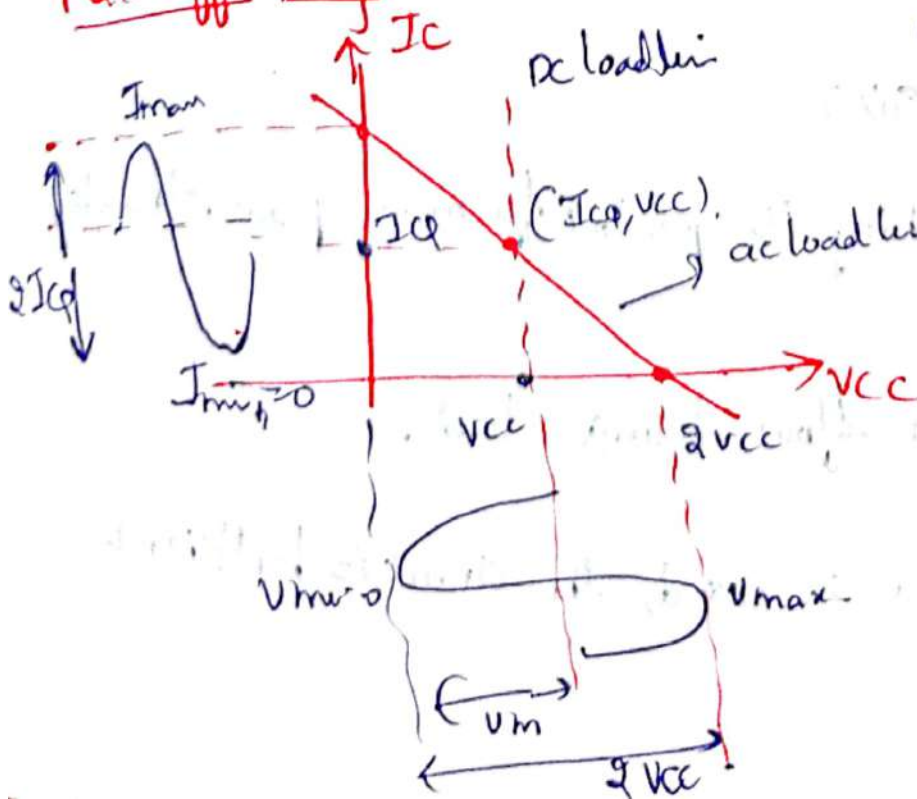 IC
DC loadlin
Imax
ICQ
(ICQ, VCC).
ac loadlin
2ICQ
Imin=0
VCC
VCC
2VCC
Vmin=0
Vmax
Vm
2VCC